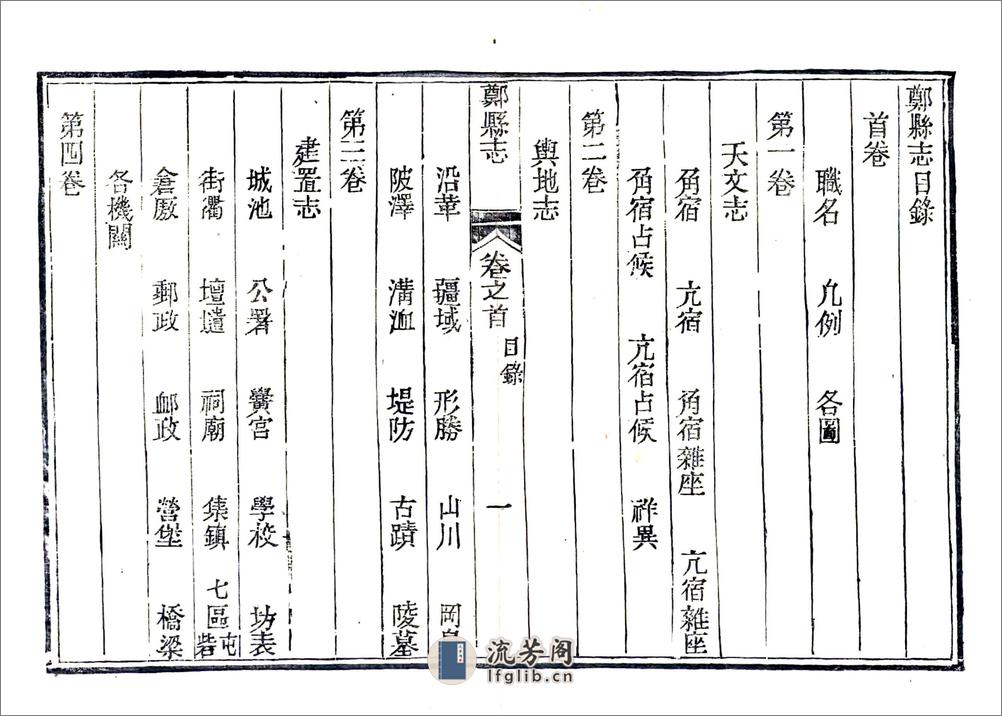 鄭縣志目錄
首卷
職名 凡例 各圖
第一卷
天文志
角宿 亢宿 角宿雜座 亢宿雜座
角宿占候 亢宿占候 祥異
第二卷
輿地志
鄭縣志 卷之首 目錄 一
沿革 疆域 形勝 山川 岡
陂澤 溝洫 堤防 古蹟 陵墓
第三卷
建置志
城池 公署 黌宮 學校 坊表
街衢 壇壝 祠廟 集鎮 七區屯砦
倉廒 郵政 卹政 營堡 橋梁
各機關
第四卷
流芳阁
lfglib.cn